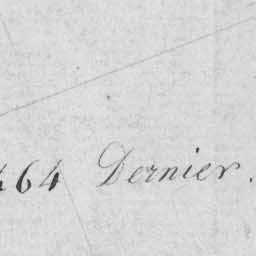 464 Dernier.